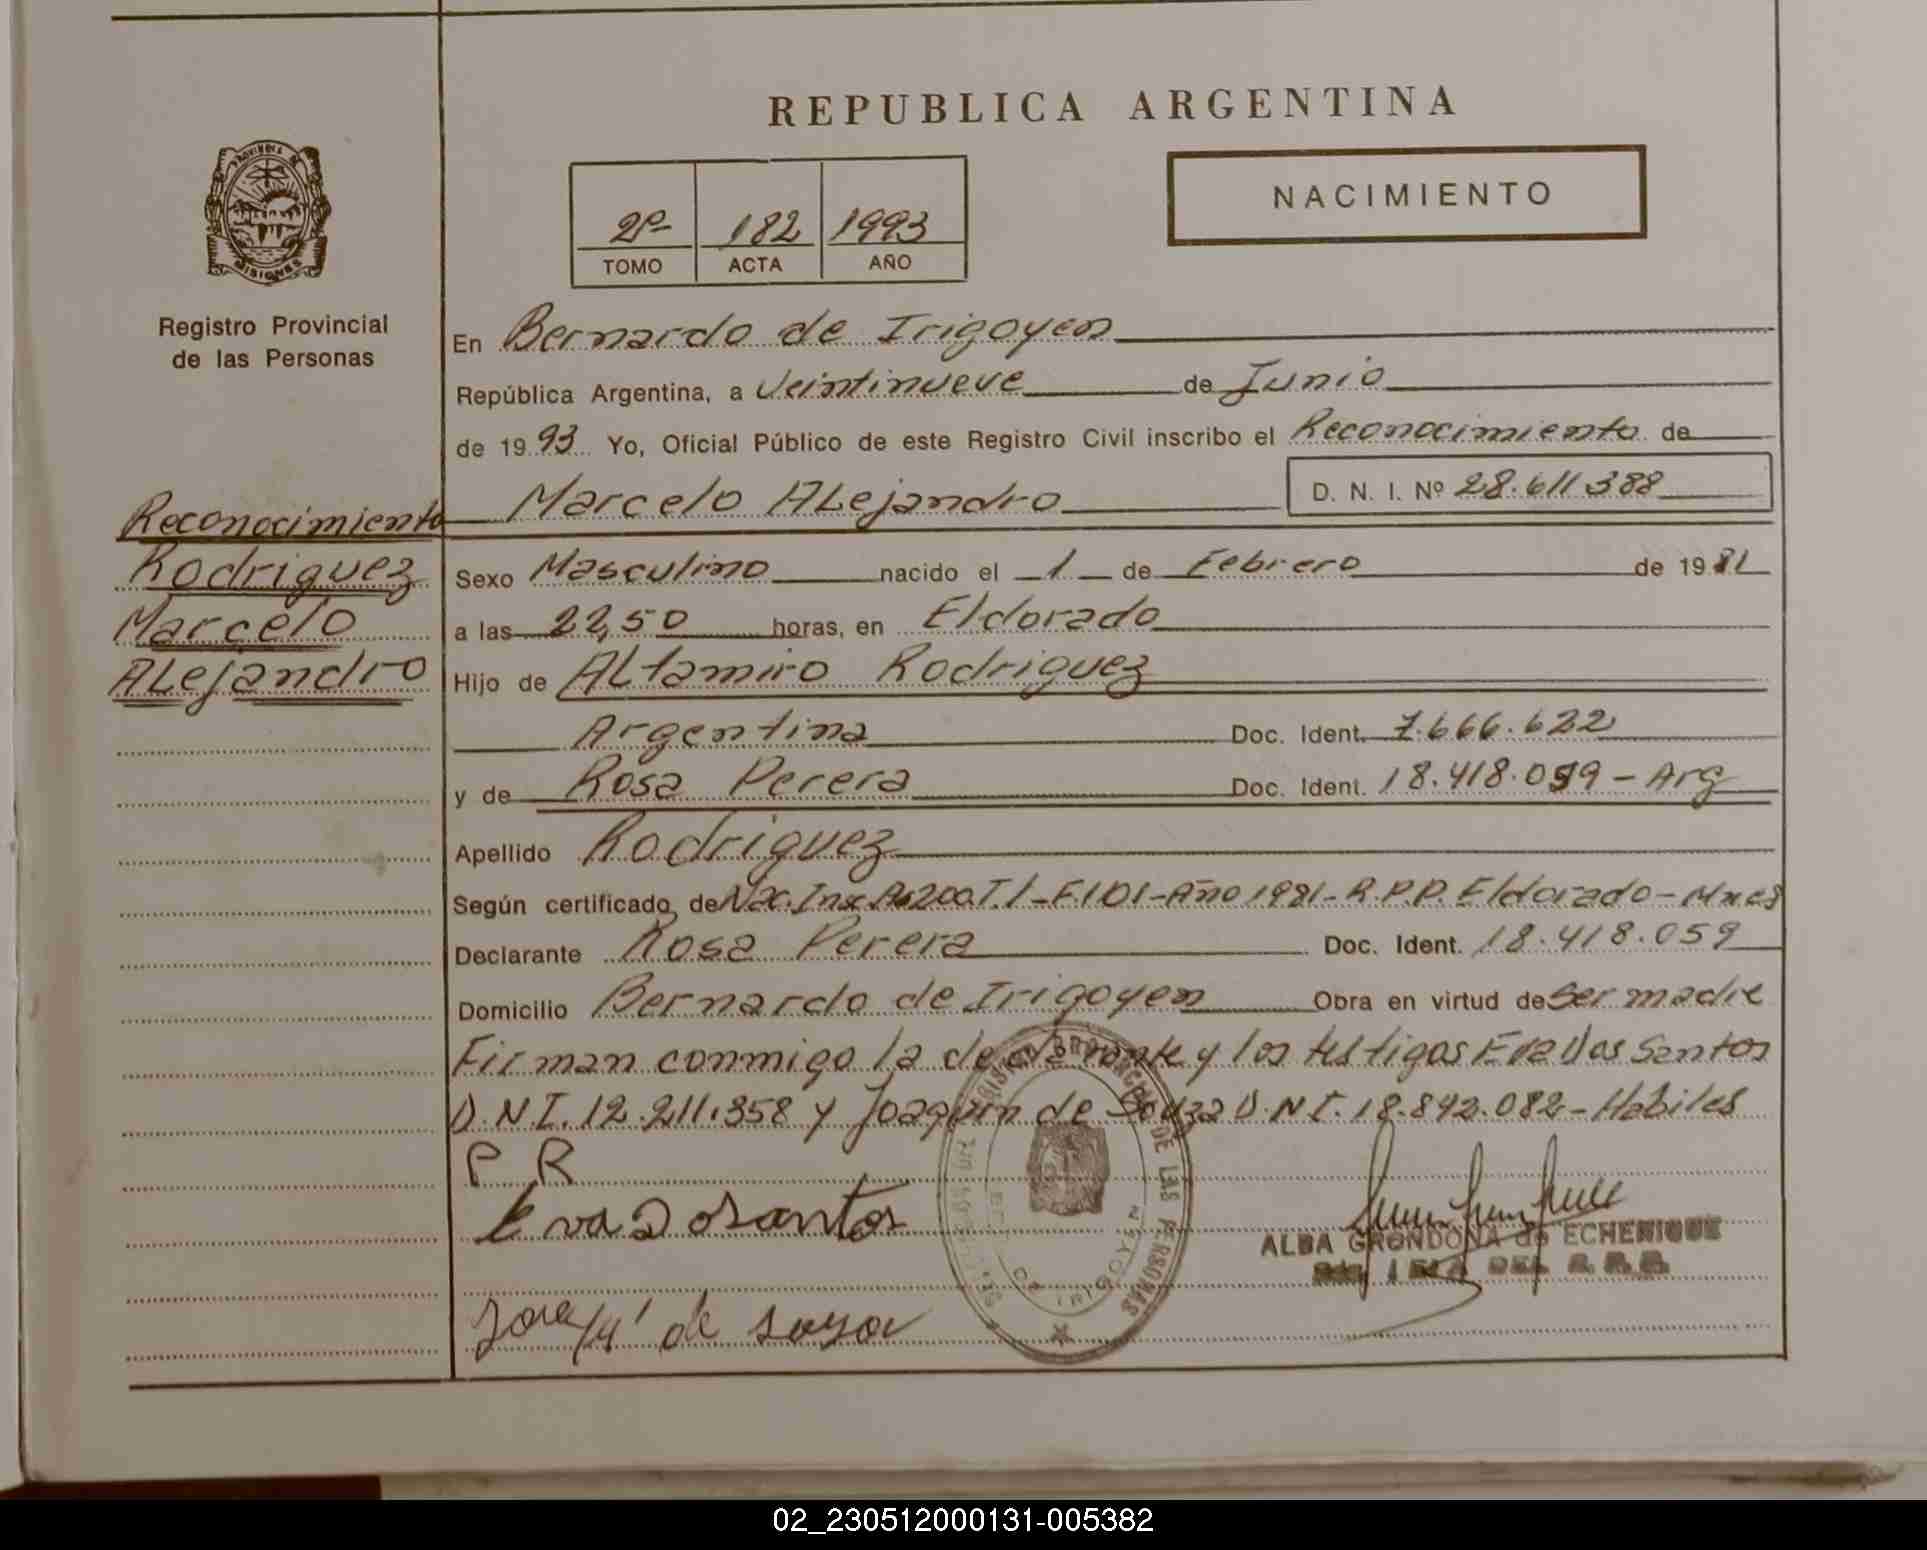 REPUBLICA ARGENTINA
PROVINCIA DE
MISIONES
Registro Provincial
de las Personas
2º
182
1993
TOMO
ACTA
AÑO
NACIMIENTO
En Bernardo de Irigoyen
República Argentina, a Veintinueve de Junio
de 1993 Yo, Oficial Público de este Registro Civil inscribo el Reconocimiento de
Marcelo ALejandro D. N. I. Nº 28.611.388
Reconocimiento
Rodriguez
Marcelo
ALejandro
Sexo Masculino nacido el 1 de Febrero de 1981
a las 22,50 horas, en Eldorado
Hijo de ALtamiro Rodriguez
Argentina Doc. Ident. 7.666.622
y de Rosa Perera Doc. Ident. 18.418.059 - Arg
Apellido Rodriguez
Según certificado de Nac. Insc. Ac. 200. T.1 - F.101 - Año 1981 - R.P.P. Eldorado - Mnes
Declarante Rosa Perera Doc. Ident. 18.418.059
Domicilio Bernardo de Irigoyen Obra en virtud de Ser madre
Firman conmigo la declarante y los testigos Eva Dos Santos
D.N.I. 12.211.358 y Joaquin de Souza D.N.I. 18.842.082 - Habiles
P R
Eva Dosantos
de
REGISTRO PROVINCIAL DE LAS PERSONAS
ALBA GRONDONA de ECHENIQUE
02_230512000131-005382